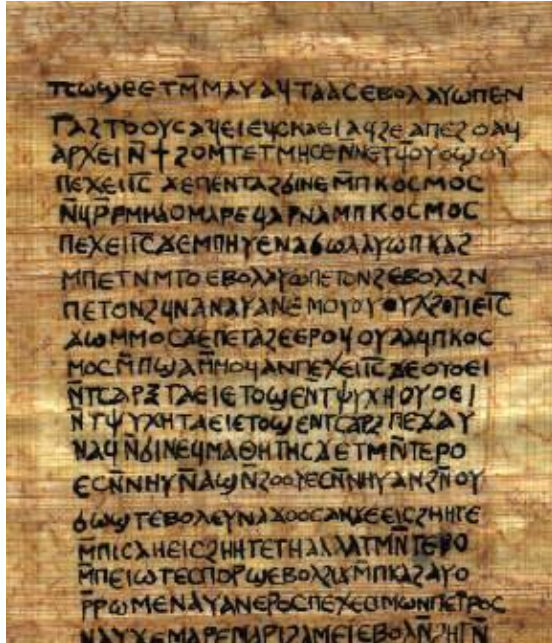 ⲡⲱϣⲉⲉⲧⲙ̄ⲙⲁⲩⲁϥⲧⲁⲁⲥⲉⲃⲟⲗⲁⲩⲱⲡⲉⲛ
ⲧⲁϩⲧⲟⲟⲩⲥⲁϥⲉⲓⲉϥⲥⲕⲁⲉⲓⲁϥϩⲉⲁⲡⲉϩⲟⲁϥ
ⲁⲣⲭⲉⲓⲛ̄ϯϩⲟⲙⲧⲉⲧⲙⲏⲥⲉⲛⲛⲉⲧϥⲟⲩⲟϣⲟⲩ
ⲡⲉϫⲉⲓⲥ̄ϫⲉⲡⲉⲛⲧⲁϩϭⲓⲛⲉⲙ̄ⲡⲕⲟⲥⲙⲟⲥ
ⲛ̄ϥⲣ̄ⲣⲙⲙⲁⲟⲙⲁⲣⲉϥⲁⲣⲛⲁⲙⲡⲕⲟⲥⲙⲟⲥ
ⲡⲉϫⲉⲓⲥ̄ϫⲉⲙⲡⲏⲩⲉⲛⲁϭⲱⲗⲁⲩⲱⲡⲕⲁϩ
ⲙⲡⲉⲧⲛⲙⲧⲟⲉⲃⲟⲗⲁⲩⲱⲡⲉⲧⲟⲛϩⲉⲃⲟⲗϩⲛ
ⲡⲉⲧⲟⲛϩϥⲛⲁⲛⲁⲩⲁⲛⲉⲙⲟⲩⲟⲩⲭϩⲟⲧⲓⲉⲓⲥ̄
ϫⲱⲙⲙⲟⲥϫⲉⲡⲉⲧⲁϩⲉⲉⲣⲟϥⲟⲩⲁⲁϥⲡⲕⲟⲥ
ⲙⲟⲥⲙ̄ⲡϣⲁⲙ̄ⲙⲟϥⲁⲛⲡⲉϫⲉⲓⲥ̄ϫⲉⲟⲩⲟⲉⲓ
ⲛ̄ⲧⲥⲁⲣⲝⲧⲁⲉⲓⲉⲧⲟϣⲉⲛ̄ⲧⲯⲩⲭⲏⲟⲩⲟⲉⲓ
ⲛⲧⲯⲩⲭⲏⲧⲁⲉⲓⲉⲧⲟϣⲉⲛⲧⲥⲁⲣⲝⲡⲉϫⲁⲩ
ⲛⲁϥⲛ̄ϭⲓⲛⲉϥⲙⲁⲑⲏⲧⲏⲥϫⲉⲧⲙⲛ̄ⲧⲉⲣⲟ
ⲉⲥⲛ̄ⲛⲏⲩⲛ̄ⲁϣⲛ̄ϩⲟⲟⲩⲉⲥⲛ̄ⲛⲏⲩⲁⲛϩⲛ̄ⲟⲩ
ϭⲱϣⲧⲉⲃⲟⲗⲉⲩⲛⲁϫⲟⲟⲥⲁⲛϫⲉⲉⲓⲥϩⲏⲏⲧⲉ
ⲙ̄ⲡⲓⲥⲁⲏⲉⲓⲥϩⲏⲏⲧⲉⲧⲏⲁⲗⲗⲁⲧⲙⲛ̄ⲧⲉⲣⲟ
ⲙ̄ⲡⲉⲓⲱⲧⲉⲥⲡⲟⲣϣⲉⲃⲟⲗϩⲓϫⲙ̄ⲡⲕⲁϩⲁⲩⲱ
ⲣ̄ⲣⲱⲙⲉⲛⲁⲩⲁⲛⲉⲣⲟⲥⲡⲉϫⲉⲥⲓⲙⲱⲛⲡⲉⲧⲣⲟⲥ
ⲛⲁⲩϫⲉⲙⲁⲣⲉⲙⲁⲣⲓϩⲁⲙⲉⲓⲉⲃⲟⲗⲛ̄ϩⲏⲧⲛ̄